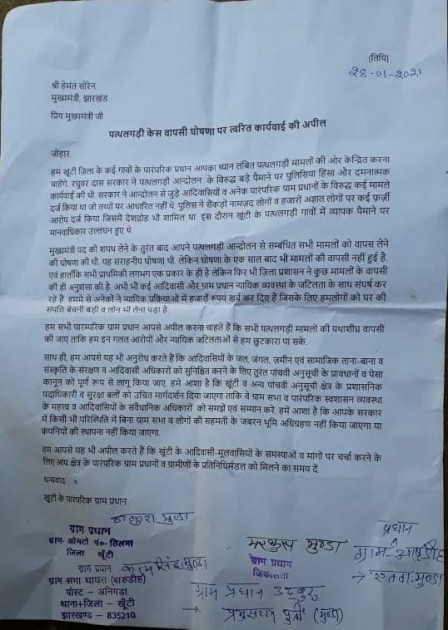 (तिथि)
28-01-2021
श्री हेमंत सोरेन
मुख्यमंत्री, झारखंड
प्रिय मुख्यमंत्री जी
पत्थलगड़ी केस वापसी घोषणा पर त्वरित कार्यवाई की अपील
जोहार,
हम खूंटी ज़िला के कई गावों के पारंपरिक प्रधान आपका ध्यान लंबित पत्थलगड़ी मामलों की ओर केन्द्रित करना
चाहेंगे. रघुवर दास सरकार ने पत्थलगड़ी आन्दोलन के विरुद्ध बड़े पैमाने पर पुलिसिया हिंसा और दमनात्मक
कार्यवाई की थी. सरकार ने आन्दोलन से जुड़े आदिवासियों व अनेक पारंपरिक ग्राम प्रधानों के विरुद्ध कई मामले
दर्ज किया था जो तथ्यों पर आधारित नहीं थे. पुलिस ने सेंकड़ों नामज़द लोगों व हजारों अज्ञात लोगों पर कई फ़र्ज़ी
आरोप दर्ज किया जिसमें देशद्रोह भी शामिल था. इस दौरान खूंटी के पत्थलगड़ी गावों में व्यापक पैमाने पर
मानवाधिकार उल्लंघन हुए थे.
मुख्यमंत्री पद की शपथ लेने के तुरंत बाद आपने पत्थलगड़ी आन्दोलन से सम्बंधित सभी मामलों को वापस लेने
की घोषणा की थी. यह सराहनीय घोषणा थी. लेकिन घोषणा के एक साल बाद भी मामलों की वापसी नहीं हुई है.
एवं हालाँकि सभी प्राथमिकी लगभग एक प्रकार के ही है लेकिन फिर भी ज़िला प्रशासन ने कुछ मामलों के वापसी
की ही अनुशंसा की है. अभी भी कई आदिवासी और ग्राम प्रधान न्यायिक व्यवस्था के जटिलता के साथ संघर्ष कर
रहे हैं. हममें से अनेकों ने न्यायिक प्रक्रियाओं में हजारों रुपए खर्च कर दिए हैं जिसके लिए हमलोगों को घर की
संपत्ति बेचनी पड़ी व लोन भी लेना पड़ा है.
हम सभी पारम्परिक ग्राम प्रधान आपसे अपील करना चाहते हैं कि सभी पत्थलगड़ी मामलों की यथाशीघ्र वापसी
की जाए ताकि हम इन गलत आरोपों और न्यायिक जटिलताओं से हम छुटकारा पा सकें.
साथ ही, हम आपसे यह भी अनुरोध करते हैं कि आदिवासियों के जल, जंगल, ज़मीन एवं सामाजिक ताना-बाना व
संस्कृति के संरक्षण व आदिवासी अधिकारों को सुनिश्चित करने के लिए तुरंत पांचवी अनुसूची के प्रावधानों व पेसा
कानून को पूर्ण रूप से लागू किया जाए. हमें आशा है कि खूंटी व अन्य पांचवी अनुसूची क्षेत्र के प्रशासनिक
पदाधिकारी व सुरक्षा बलों को उचित मार्गदर्शन दिया जाएगा ताकि वे ग्राम सभा व पारंपरिक स्वशासन व्यवस्था
के महत्त्व व आदिवासियों के संवैधानिक अधिकारों को समझें एवं सम्मान करें. हमें आशा है कि आपके सरकार
में किसी भी परिस्थिति में बिना ग्राम सभा व लोगों की सहमती के जबरन भूमि अधिग्रहण नहीं किया जाएगा या
कंपनियों की स्थापना नहीं किया जाएगा.
हम आपसे यह भी अपील करते हैं कि खूंटी के आदिवासी-मूलवासियों के समस्याओं व मांगों पर चर्चा करने के
लिए आप क्षेत्र के पारंपरिक ग्राम प्रधानों व ग्रामीणों के प्रतिनिधिमंडल को मिलने का समय दें.
धन्यवाद
खूंटी के पारंपरिक ग्राम प्रधान
मुण्डा
ग्राम प्रधान
तिलमा
जिला खूँटी
ग्राम प्रधान
मुण्डा
ग्राम सभा घाघरा
पोस्ट - अनिगड़ा
थाना+जिला - खूँटी
झारखण्ड - 835210
मरकुस मुण्डा
ग्राम प्रधान
ग्राम प्रधान उदबुरु
(मुंडा)
प्रधान
ग्राम-
मुण्डा